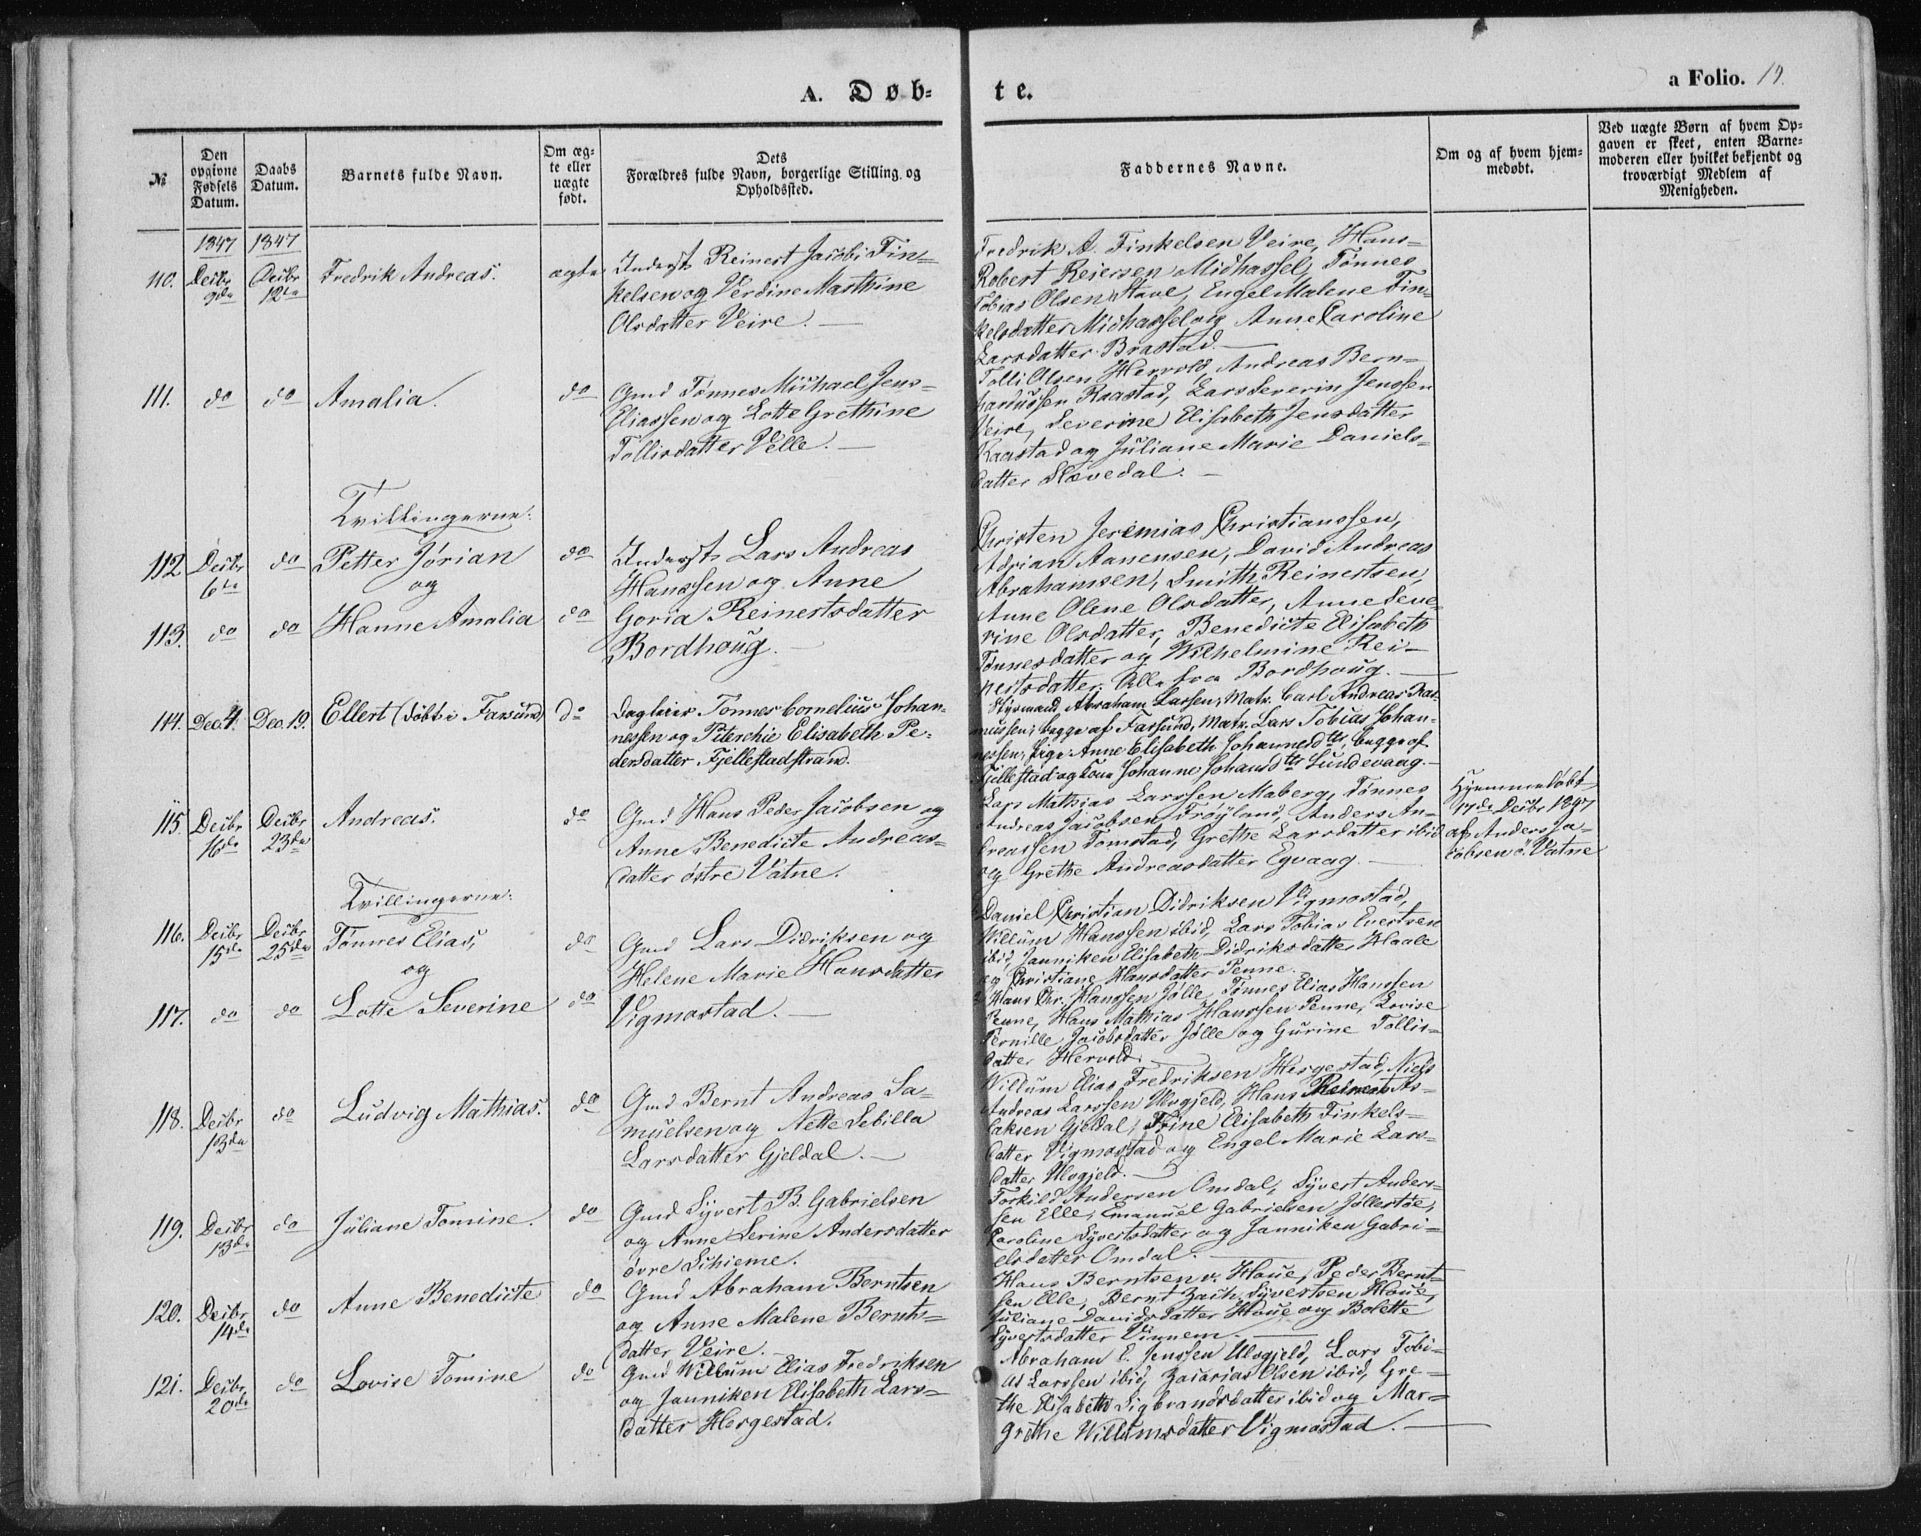 A. Døb-
te.
a Folio. 19.
№
Den opgivne Fødsels Datum.
Daabs Datum.
Barnets fulde Navn.
Om ægte eller uægte født.
Dets Forældres fulde Navn, borgerlige Stilling og Opholdssted.
Faddernes Navne.
Om og af hvem hjemmedøbt.
Ved uægte Børn af hvem Opgaven er skeet, enten Barnemoderen eller hvilket bekjendt og troværdigt Medlem af Menigheden.
1847 1847
110. Decbr 9de Decbr 12te Fredrik Andreas. ægte
Inderst Reinert Jacobi Fin-
kelsen og Verdine Marthine
Olsdatter Veire. —
Fredrik A. Finkelsen Veire, Hans
Robert Reiersen Midhassel, Tønnes
Tobias Olsen Stave, Engel Malene Fin-
kelsdatter Midhassel og Anne Caroline
Larsdatter Brastad. —
111. do do Amalia. do
Gmd Tønnes Michael Jens-
Eliassen og Lotte Grethine
Tollisdatter Velle. —
Tolli Olsen Hervold, Andreas Bern-
hardussen Raastad, Lars Severin Jenssen
Veire, Severine Elisabeth Jensdatter
Raastad og Juliane Marie Daniels-
datter Stavedal. —
Tvillingerne:
112 Decbr 6te do Petter Jørian do
og
113. do do Hanne Amalia do
Inderst Lars Andreas
Hanssen og Anne
Goria Reinertsdatter
Bordhoug. —
Christen Jeremias Christianssen,
Adrian Aanensen, David Andreas
Abrahamsen, Smith Reinertsen,
Anne Olene Olsdatter, Anne Seve-
rine Olsdatter, Benedicte Elisabeth
Tønnesdatter og Wilhelmine Rei-
nertsdatter. Alle fra Bordhoug. —
114. Dec. 4. Dec. 19. Ellert (døbt i Farsund) do
Dagleier Tønnes Cornelius Johan-
nessen og Peterchie Elisabeth Pe-
dersdatter Fjellestadstrand.
Styrmand Abraham Larsen, Matr. Carl Andreas Ras-
mussen, begge af Farsund, Matr. Lars Tobias Johan-
nessen, Pige Anne Elisabeth Johannesdtr, begge af
Fjellestad og Kone Johanne Johansdtr Sundevaag. —
115. Decbr 16de Decbr 23de Andreas. do
Gmd Hans Peder Jacobsen og
Anne Benedicte Andreas-
datter østre Vatne.
Lars Mathias Larssen Maberg, Tønnes
Andreas Jacobsen Frøyland, Anders An-
dreassen Tomstad, Grethe Larsdatter ibid
og Grethe Andreasdatter Egvaag. —
Hjemmedøbt
17de Decbr 1847
af Anders Ja-
cobsen ø. Vatne
Tvillingerne:
116. Decbr 15de Decbr 25de Tønnes Elias, do
og
117. do do Lotte Severine do
Gmd Lars Didriksen og
Helene Marie Hansdatter
Vigmostad. —
Daniel Christian Didriksen Vigmostad,
Willum Hanssen ibid, Lars Tobias Evertsen
ibid, Janniken Elisabeth Didriksdatter Haale
og Christiane Hansdatter Penne.
Hans Chr. Hanssen Jølle, Tønnes Elias Hanssen
Penne, Hans Mathias Hanssen Penne, Lovise
Pernille Jacobsdatter Jølle og Gurine Tollis-
datter Hervold. —
118. Decbr 13de do Ludvig Mathias. do
Gmd Bernt Andreas Sa-
muelsen og Nette Sebilla
Larsdatter Gjeldal. —
Willum Elias Fredriksen Hergestad, Niels
Andreas Larssen Ulvgjeld, Hans Reinert As-
laksen Gjeldal, Trine Elisabeth Finkels-
datter Vigmostad og Engel Marie Lars-
datter Ulvgjeld. —
119. Decbr 13de do Juliane Tomine. do
Gmd Syvert B. Gabrielsen
og Anne Serine Andersdatter
øvre Skieme.
Torkild Andersen Omdal, Syvert Anders-
sen Elle, Emanuel Gabrielsen Jøllestøe,
Caroline Syvertsdatter og Janniken Gabri-
elsdatter Omdal. —
120. Decbr 14de do Anne Benedicte do
Gmd Abraham Berntsen
og Anne Malene Bernts-
datter Veire. —
Hans Berntsen v. Haue, Peder Bernt-
sen Elle, Bernt Zach. Syvertsen Haue,
Juliane Davidsdatter Haue og Bolette
Syvertsdatter Vinnem. —
121. Decbr 20de do Lovise Tomine do
Gmd Willum Elias Fredriksen
og Janniken Elisabeth Lars-
datter Hergestad.
Abraham E. Jenssen Ulvgjeld, Lars Tobi-
as Larssen ibid, Zacarias Olsen ibid, Gre-
the Elisabeth Sigbrandsdatter ibid og Mar-
grethe Willumsdatter Vigmostad. —